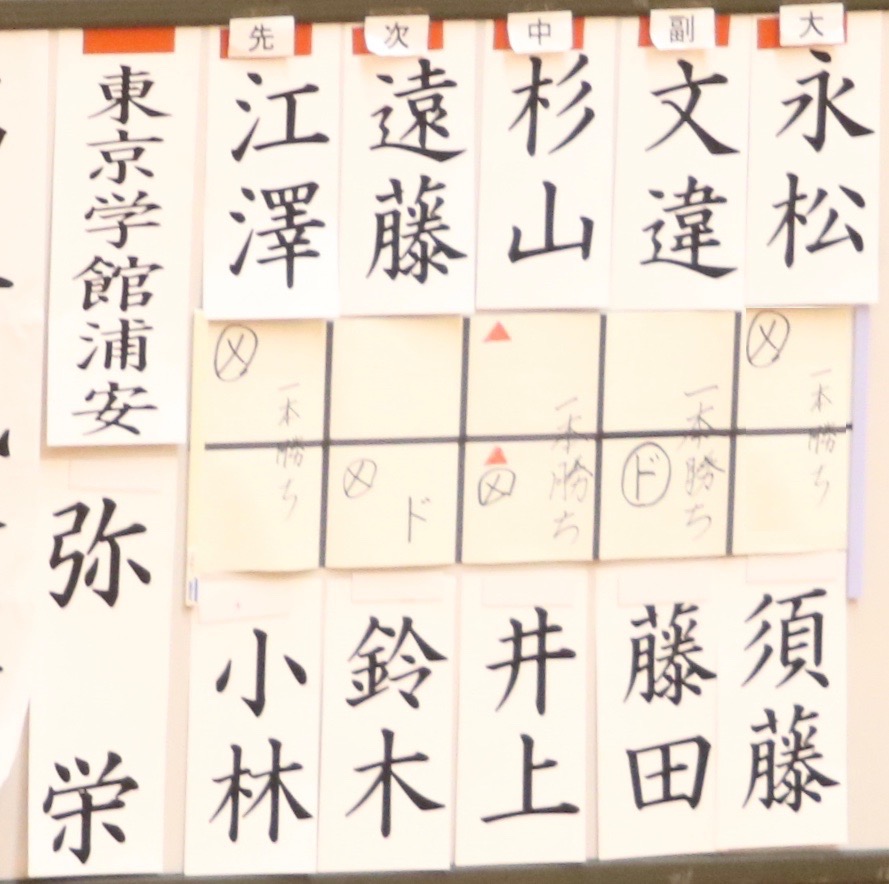 先 次 中 副 大
東京学館浦安
江澤
遠藤
杉山
文違
永松
メ 一本勝ち
メ ド
▲ ▲ メ 一本勝ち
ド 一本勝ち
メ 一本勝ち
弥栄
小林
鈴木
井上
藤田
須藤